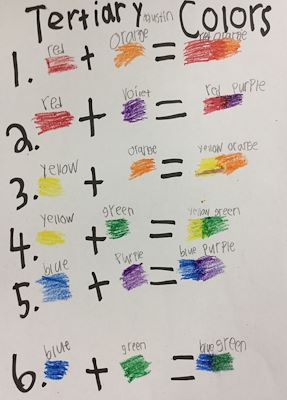 Tertiary Austin Colors
1. red + orange = red orange
2. red + voilet = red purple
3. yellow + orange = yellow orange
4. yellow + green = yellow green
5. blue + Purple = blue purple
6. blue + green = blue green